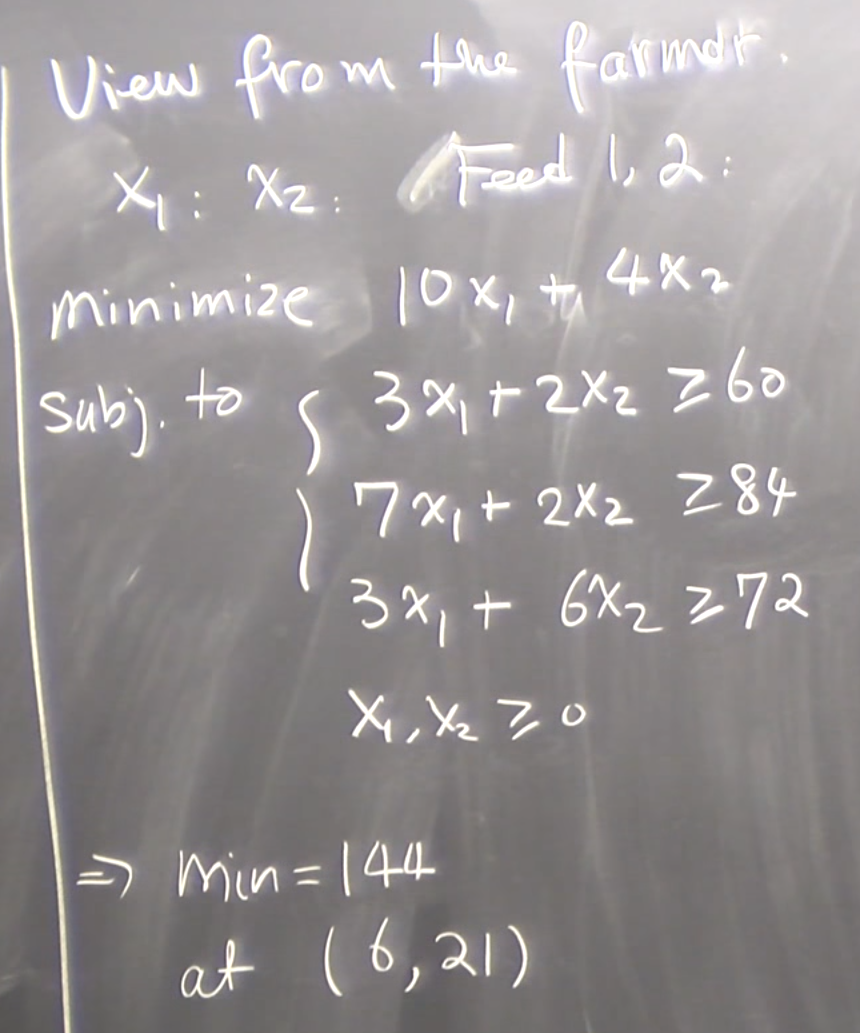 View from the farmer.
x₁: x₂: Feed 1, 2:
minimize 10x₁ + 4x₂
subj. to { 3x₁ + 2x₂ ≥ 60
7x₁ + 2x₂ ≥ 84
3x₁ + 6x₂ ≥ 72
x₁, x₂ ≥ 0
⇒ min = 144
at (6, 21)